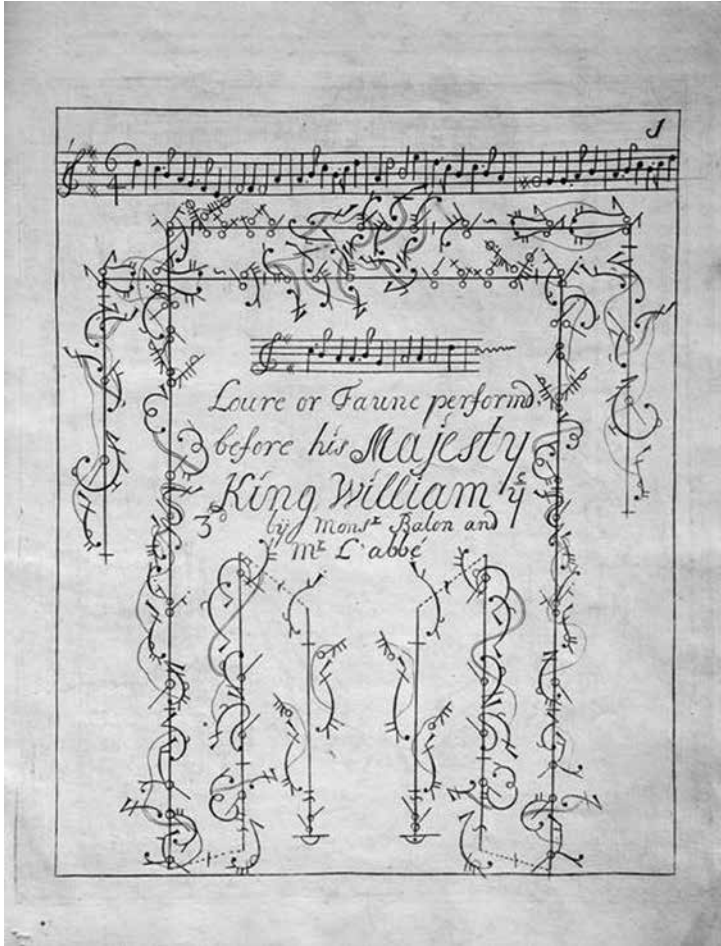 1
6
4
Loure or Faune performd
before his Majesty
King William yᵉ
3º
by Monsʳ Balon and
Mʳ L'abbé